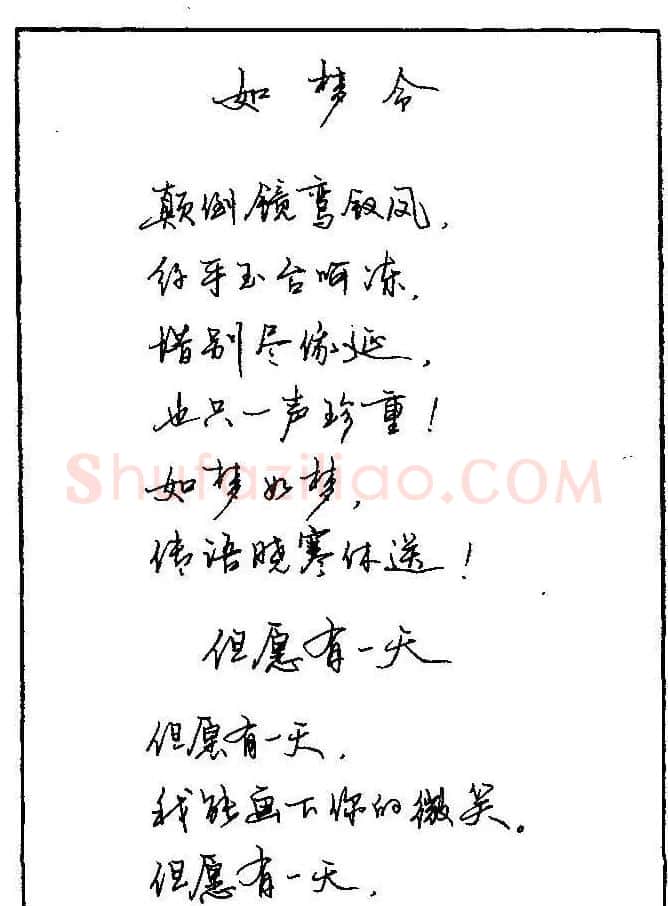 如梦令
颠倒镜鸾钗凤，
纤手玉台呵冻，
惜别尽俄延，
也只一声珍重！
Shufaziliao.COM
如梦如梦，
传语晓寒休送！
但愿有一天
但愿有一天，
我能画下你的微笑。
但愿有一天，